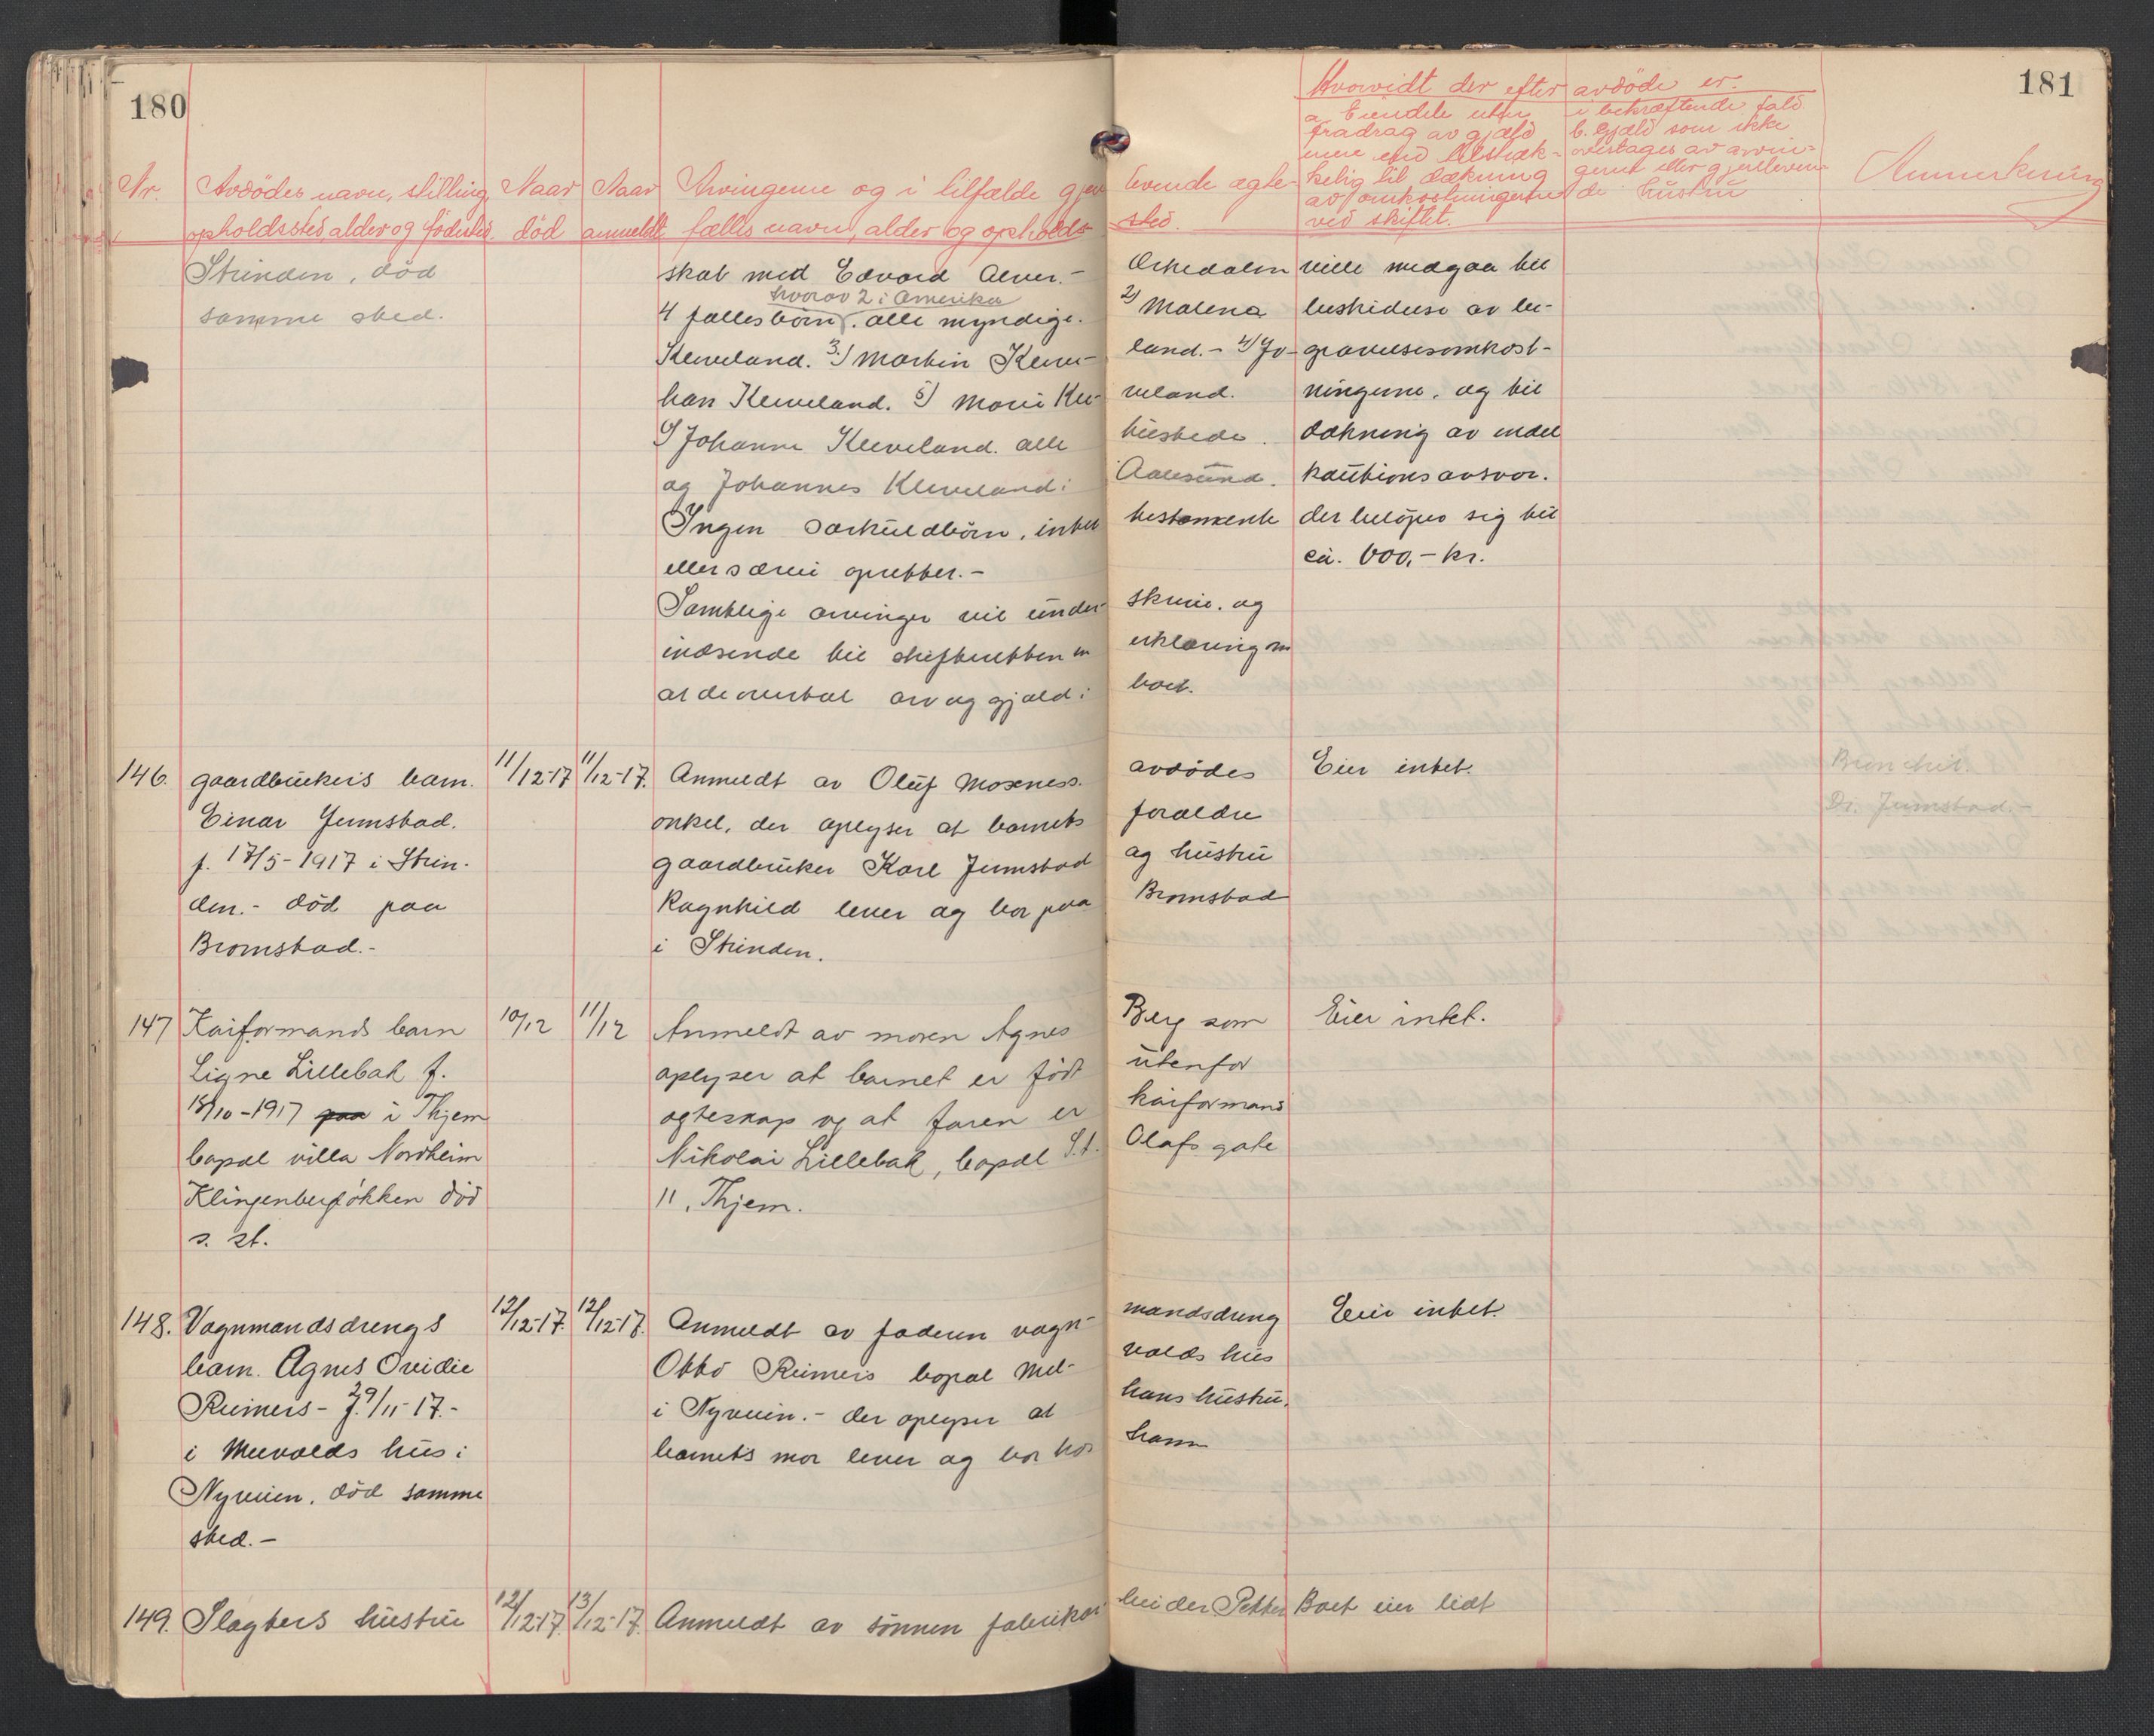 180
181
Hvorvidt der efter avdöde er.
a. Eiendele uten
fradrag av gjæld
mere end tilstræk-
kelig til dækning
av omkostningerne
ved skiftet.
i bekræftende fald
b. Gjæld som ikke
overtages av arvin-
gerne eller gjenleven-
de hustru
Nr.
Avdödes navn, stilling,
opholdssted alder og födested.
Naar
död
Naar
anmeldt
Arvingerne og i tilfælde gjen levende ægte-
fælles navn, alder og opholds sted.
Anmerkning
Strinden, död
samme sted.
skab med Edvard Alver.- Orkedalen
hvorav 2 i Amerika
4 fællesbörn. alle myndige. 2) Malena
Kleveland. 3) Martin Kleve- land.- 4) Jo-
han Kleveland. 5) Marie Kle- veland.
6) Johanne Kleveland. alle
og Johannes Kleveland i Aalesund.
Ingen særkuldbörn, intet testamente
eller særeie oprettet.-
Samtlige arvinger vil under- skrive. og
indsende til skifteretten en erklæring om
at de overtar arv og gjæld i boet.
ville medgaa til
beskidelse av be-
gravelsesomkost-
ningerne, og til
dækning av endel
kautionsansvar.
der belöper sig til
ca. 600,- kr.
146. gaardbrukers barn.
Einar Jumstad.
f. 17/5-1917 i Strin-
den.- död paa
Bromstad.-
11/12-17
11/12-17.
Anmeldt av Oluf Moxness. avdödes
onkel, der oplyser at barnets forældre
gaardbruker Karl Jumstad og hustru
Ragnhild lever og bor paa Bromstad
i Strinden.
Eier intet.
Dr. Jumstad.-
147 Kaiformands barn
Signe Lillebak f.
18/10-1917 paa i Thjem
bopæl villa Nordheim
Klingenbergløkken död
s. st.
10/12
11/12
Anmeldt av moren Agnes Berg som
oplyser at barnet er født utenfor
ægteskap og at faren er kaiformand
Nikolai Lillebak, bopæl St. Olafs gate
11, Thjem.
Eier intet.
148. Vognmandsdrengs
barn. Agnes Ovidie
Reimers- f. 29/11-17.-
i Meevolds hus i
Nyveien, död samme
sted.-
12/12-17.
12/12-17.
Anmeldt av faderen vogn- mandsdreng
Otto Reimers bopæl Mel- volds hus
i Nyveien.- der oplyser at hans hustru,
barnets mor lever og bor hos ham
Eier intet.
149. Slagters hustru
12/12-17.
13/12-17.
Anmeldt av sönnen fabrikar- beider Petter
Boet eier lidt